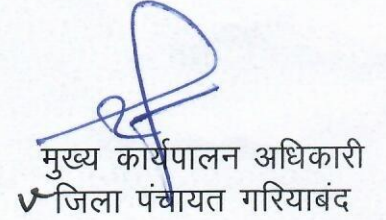 मुख्य कार्यपालन अधिकारी
जिला पंचायत गरियाबंद